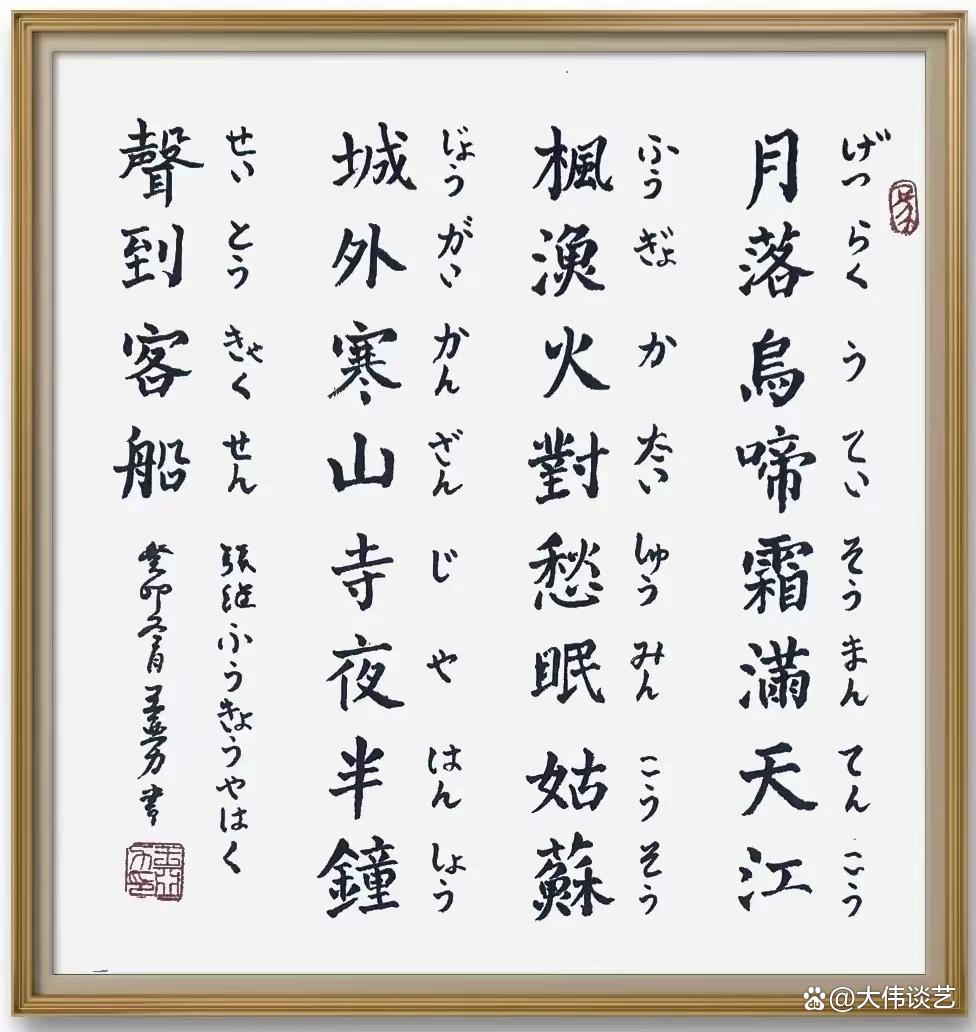 げつらくうていそうまんてんこう
月落烏啼霜滿天江
ふうぎょかたいしゅうみんこうそう
楓漁火對愁眠姑蘇
じょうがいかんざんじやはんしょう
城外寒山寺夜半鐘
せいとうきゃくせん
聲到客船
張継ふうきょうやはく
癸卯冬月 書
@大伟谈艺